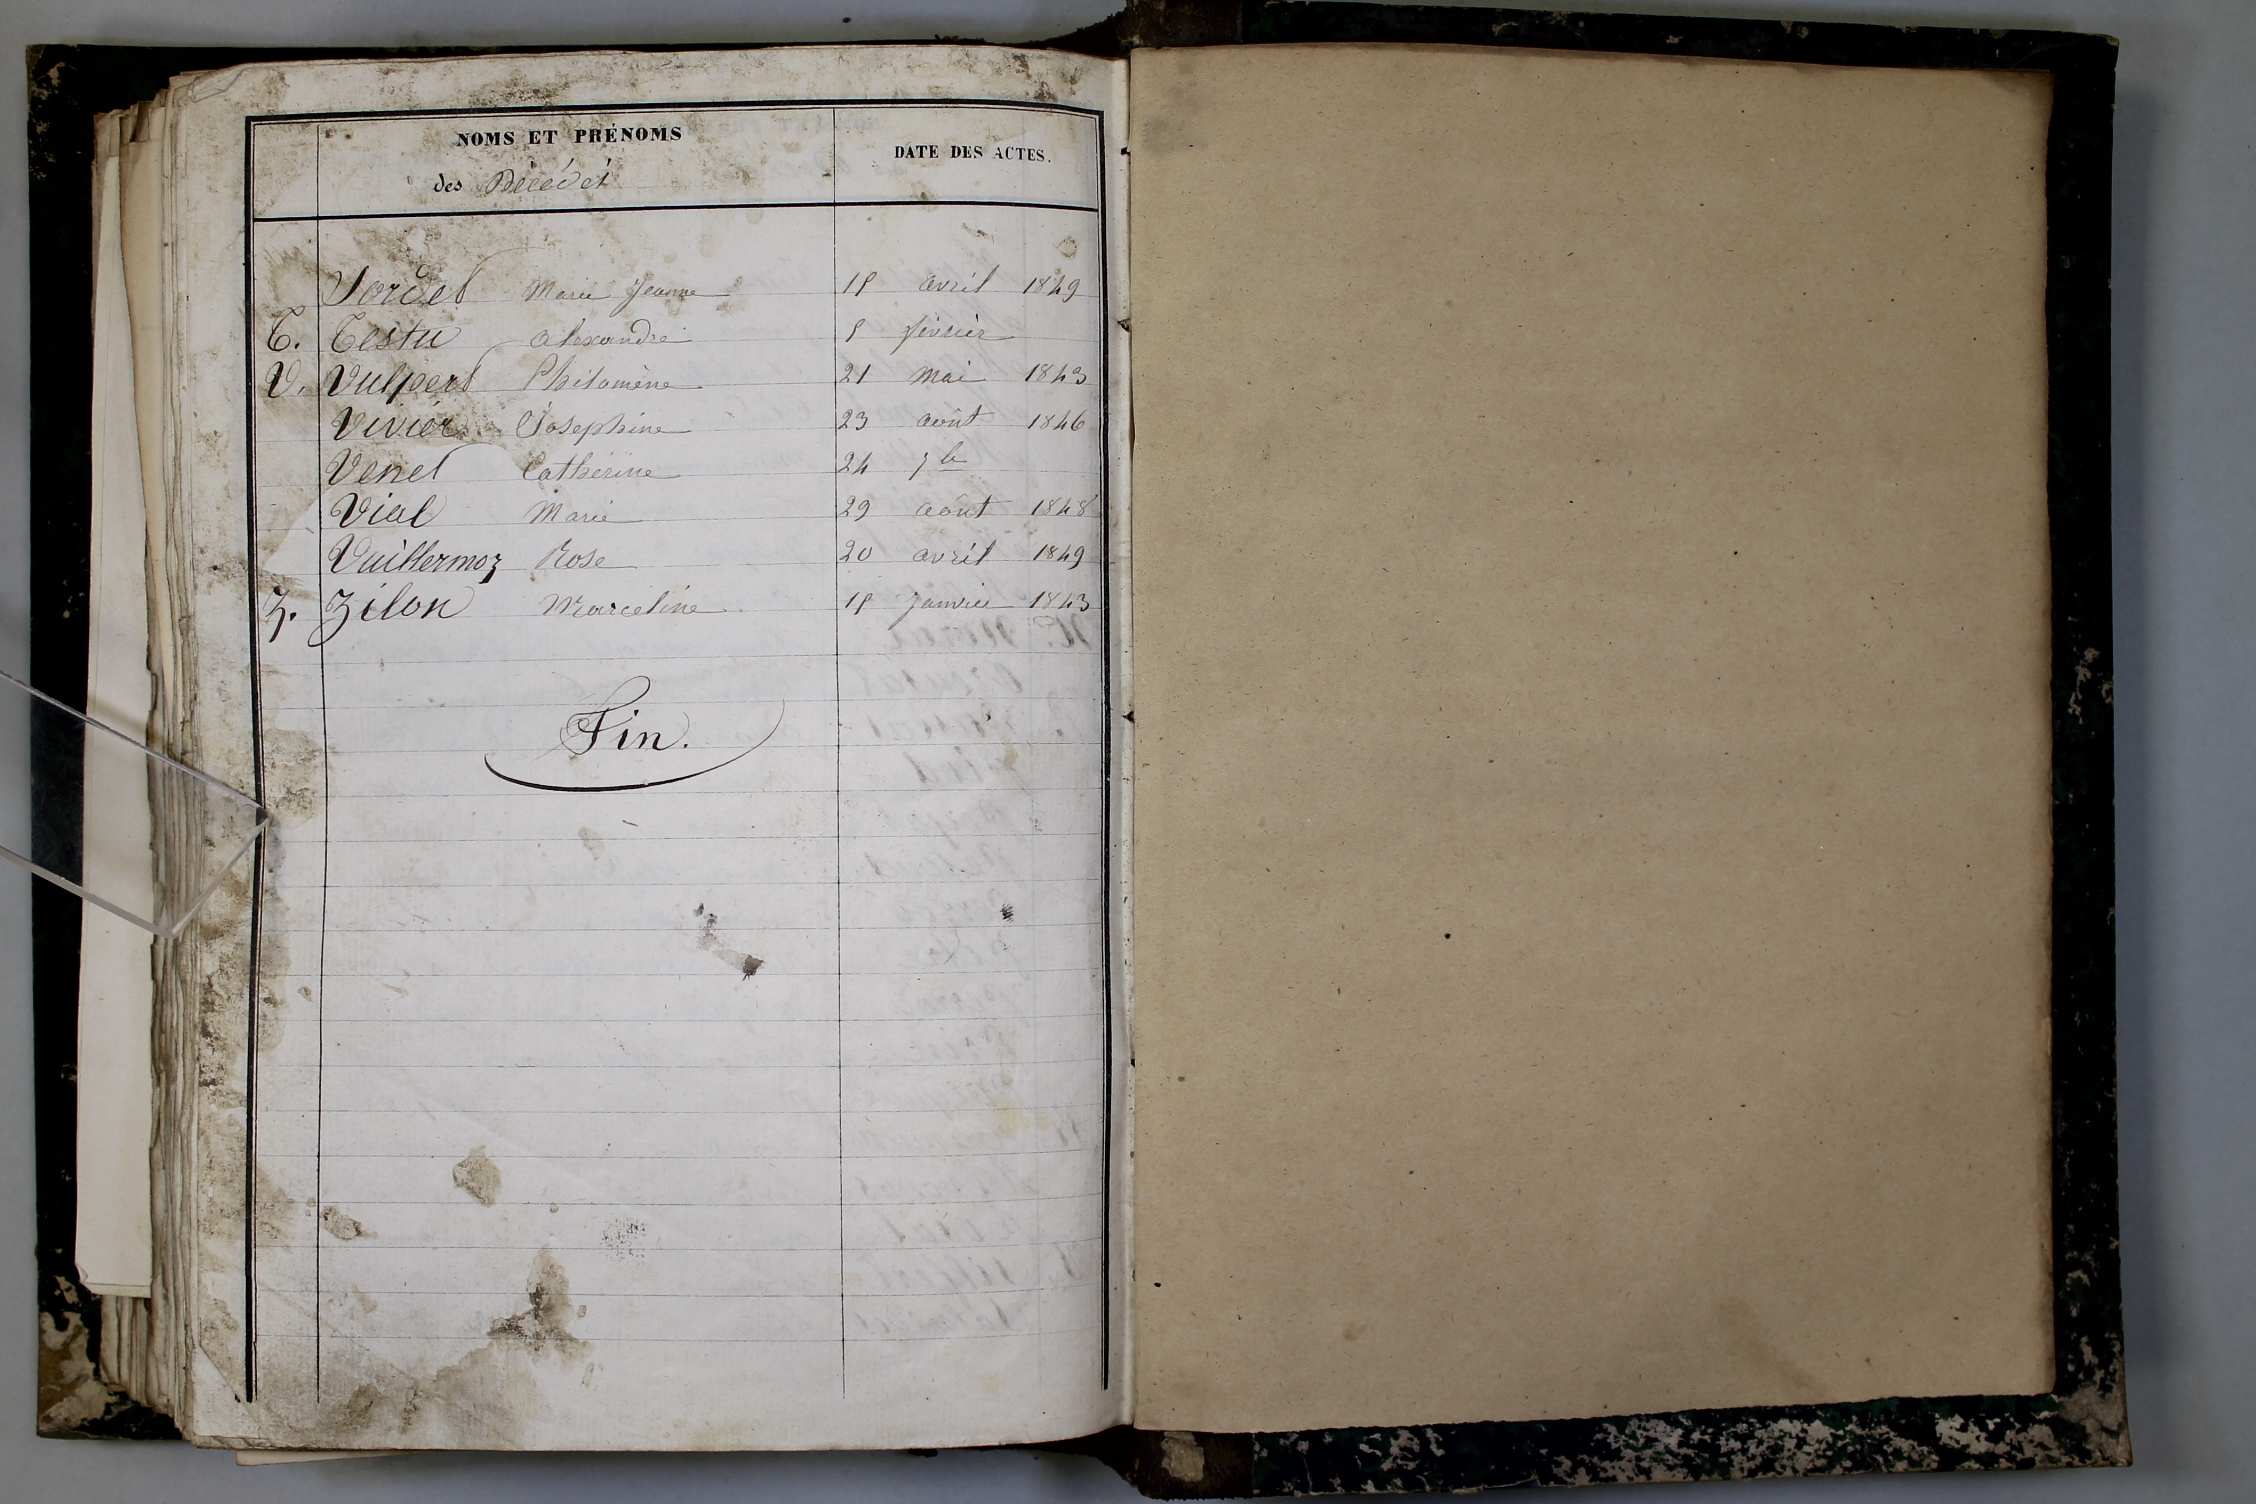 NOMS ET PRÉNOMS
des Décédés
DATE DES ACTES.
Sordel Marie Jeanne 15 avril 1849
T. Testu alexandre 5 février
V. Vulpert Philomène 21 Mai 1843
Vivier Josephine 23 août 1846
Venel Catherine 24 7bre
Vial Marie 29 août 1848
Vuillermoz Rose 20 avril 1849
Z. Zilon Marceline 15 Janvier 1843
Fin.